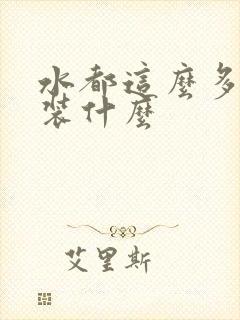 水都這麼多
裝什麼
艾里斯